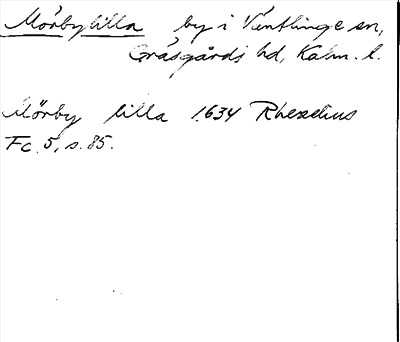 Mörbylilla by i Ventlinge sn,
Gräsgårds hd, Kalm. l.
Mörby lilla 1634 Rhezelius
Fc. 5, s. 85.